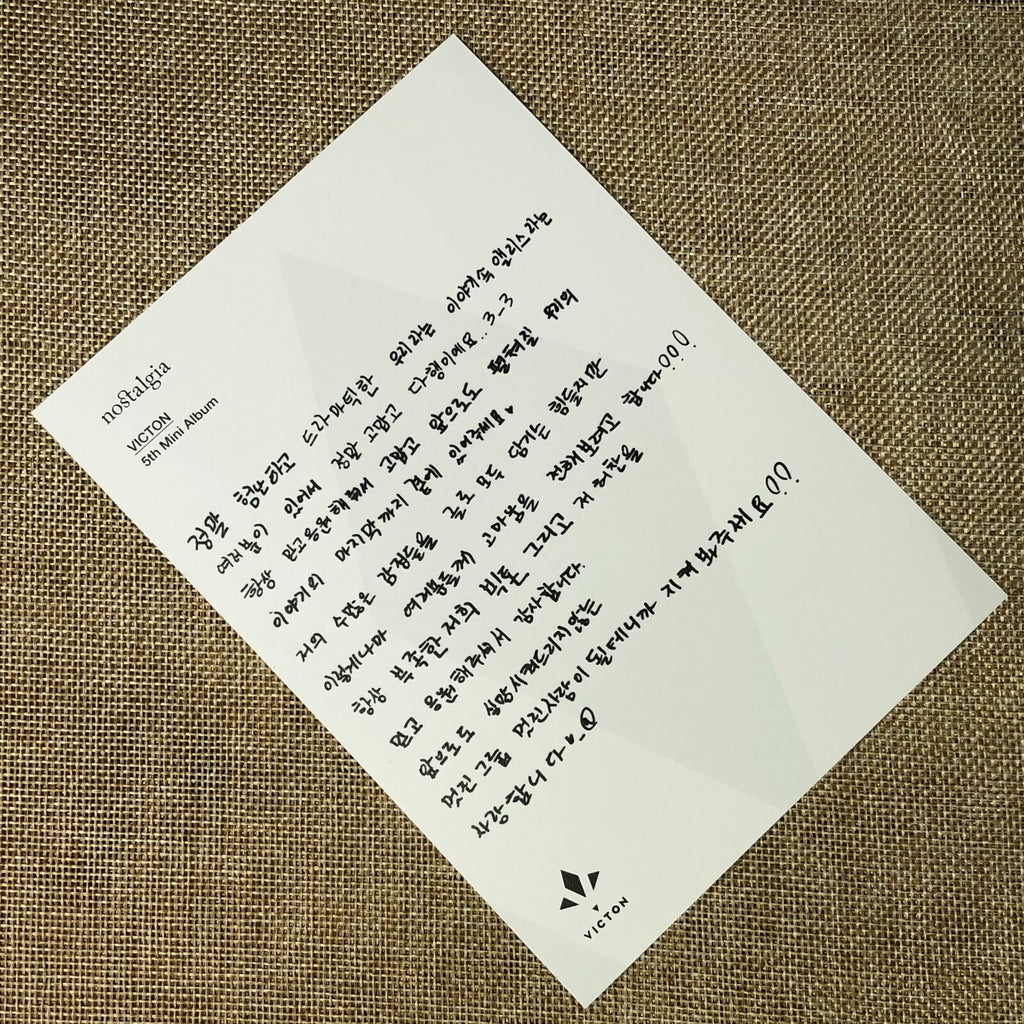 nostalgia
VICTON
5th Mini Album
정말 험난하고 드라마틱한 우리라는 이야기속 앨리스라는
여러분이 있어서 정말 고맙고 다행이에요..3_3
항상 믿고응원해줘서 고맙고 앞으로도 펼쳐질 우리의
이야기의 마지막까지 곁에 있어주세요♥
저의 수많은 감정들을 글로 모두 담기는 힘들지만
이렇게나마 여러분들께 고마움을 전해보려고 합니다!!!
항상 부족한 저희 빅톤 그리고 저 허찬을
믿고 응원해주셔서 감사합니다.
앞으로도 실망시켜드리지않는
멋진 그룹 멋진사람이 될테니까 지켜봐주세요!!
사랑합니다♥
VICTON